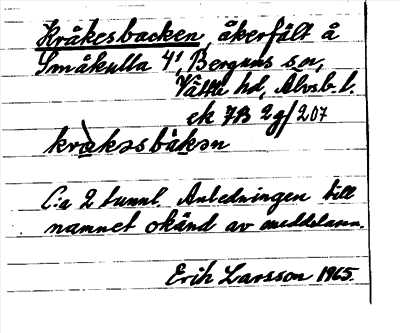 Kråkesbacken, åkerfält å
Småkulla 4¹, Bergums sn,
Vättle hd, Älvsb. l.
ek 7B 2g/207
kråkəsbàkən
C:a 2 tunnl. Anledningen till
namnet okänd av meddelaren.
Erik Larsson 1965.